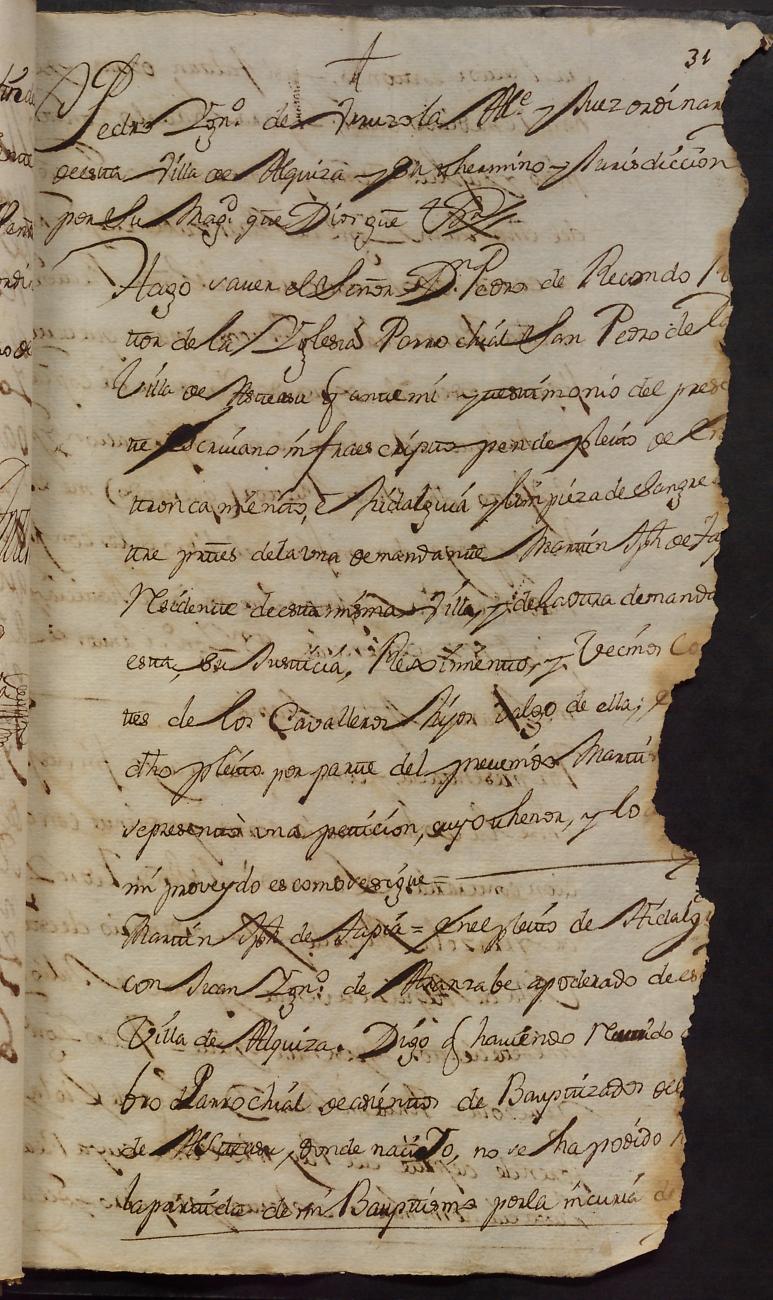 31
Pedro Ygn.º de Yruzola Alle y Juez ordinar
deesta Villa de Alquiza y Su thermino y Jurisdiccion
por Su Mag.d que Dios gue &ra
Hago saver al Señor Dn Pedro de Recondo
ttor de la Yglesia Parrochial San Pedro de
Villa de Asteasu q ante mi y testimonio del presen
te escriuano infraescripto pende pleito de En
troncamiento, è hidalguia y limpieza de Sangre
ttre prtes dela vna demandante Martin Jph de
Residente deesta misma Villa, y dela otra demanda
esta, Su Justicia, Reximiento, y Vecinos Co
tes de los Cavalleros hijos dalgo de ella; y
dho pleito por parte del prevenido Martin
sepresentò vna peticion, cuyo thenor, y lo
mi proveydo es como se sigue =
Martin Jph de Tapia = enel pleito de Hidalg
con Juan Ygn.º de Aranzabe apoderado de es
Villa de Alquiza. Digo q haviendo
bro Parrochial de asientos de Bauptizados de
de Asteasu, donde naci Yo, no se ha podido
la partida de mi Bauptismo por la incuria de